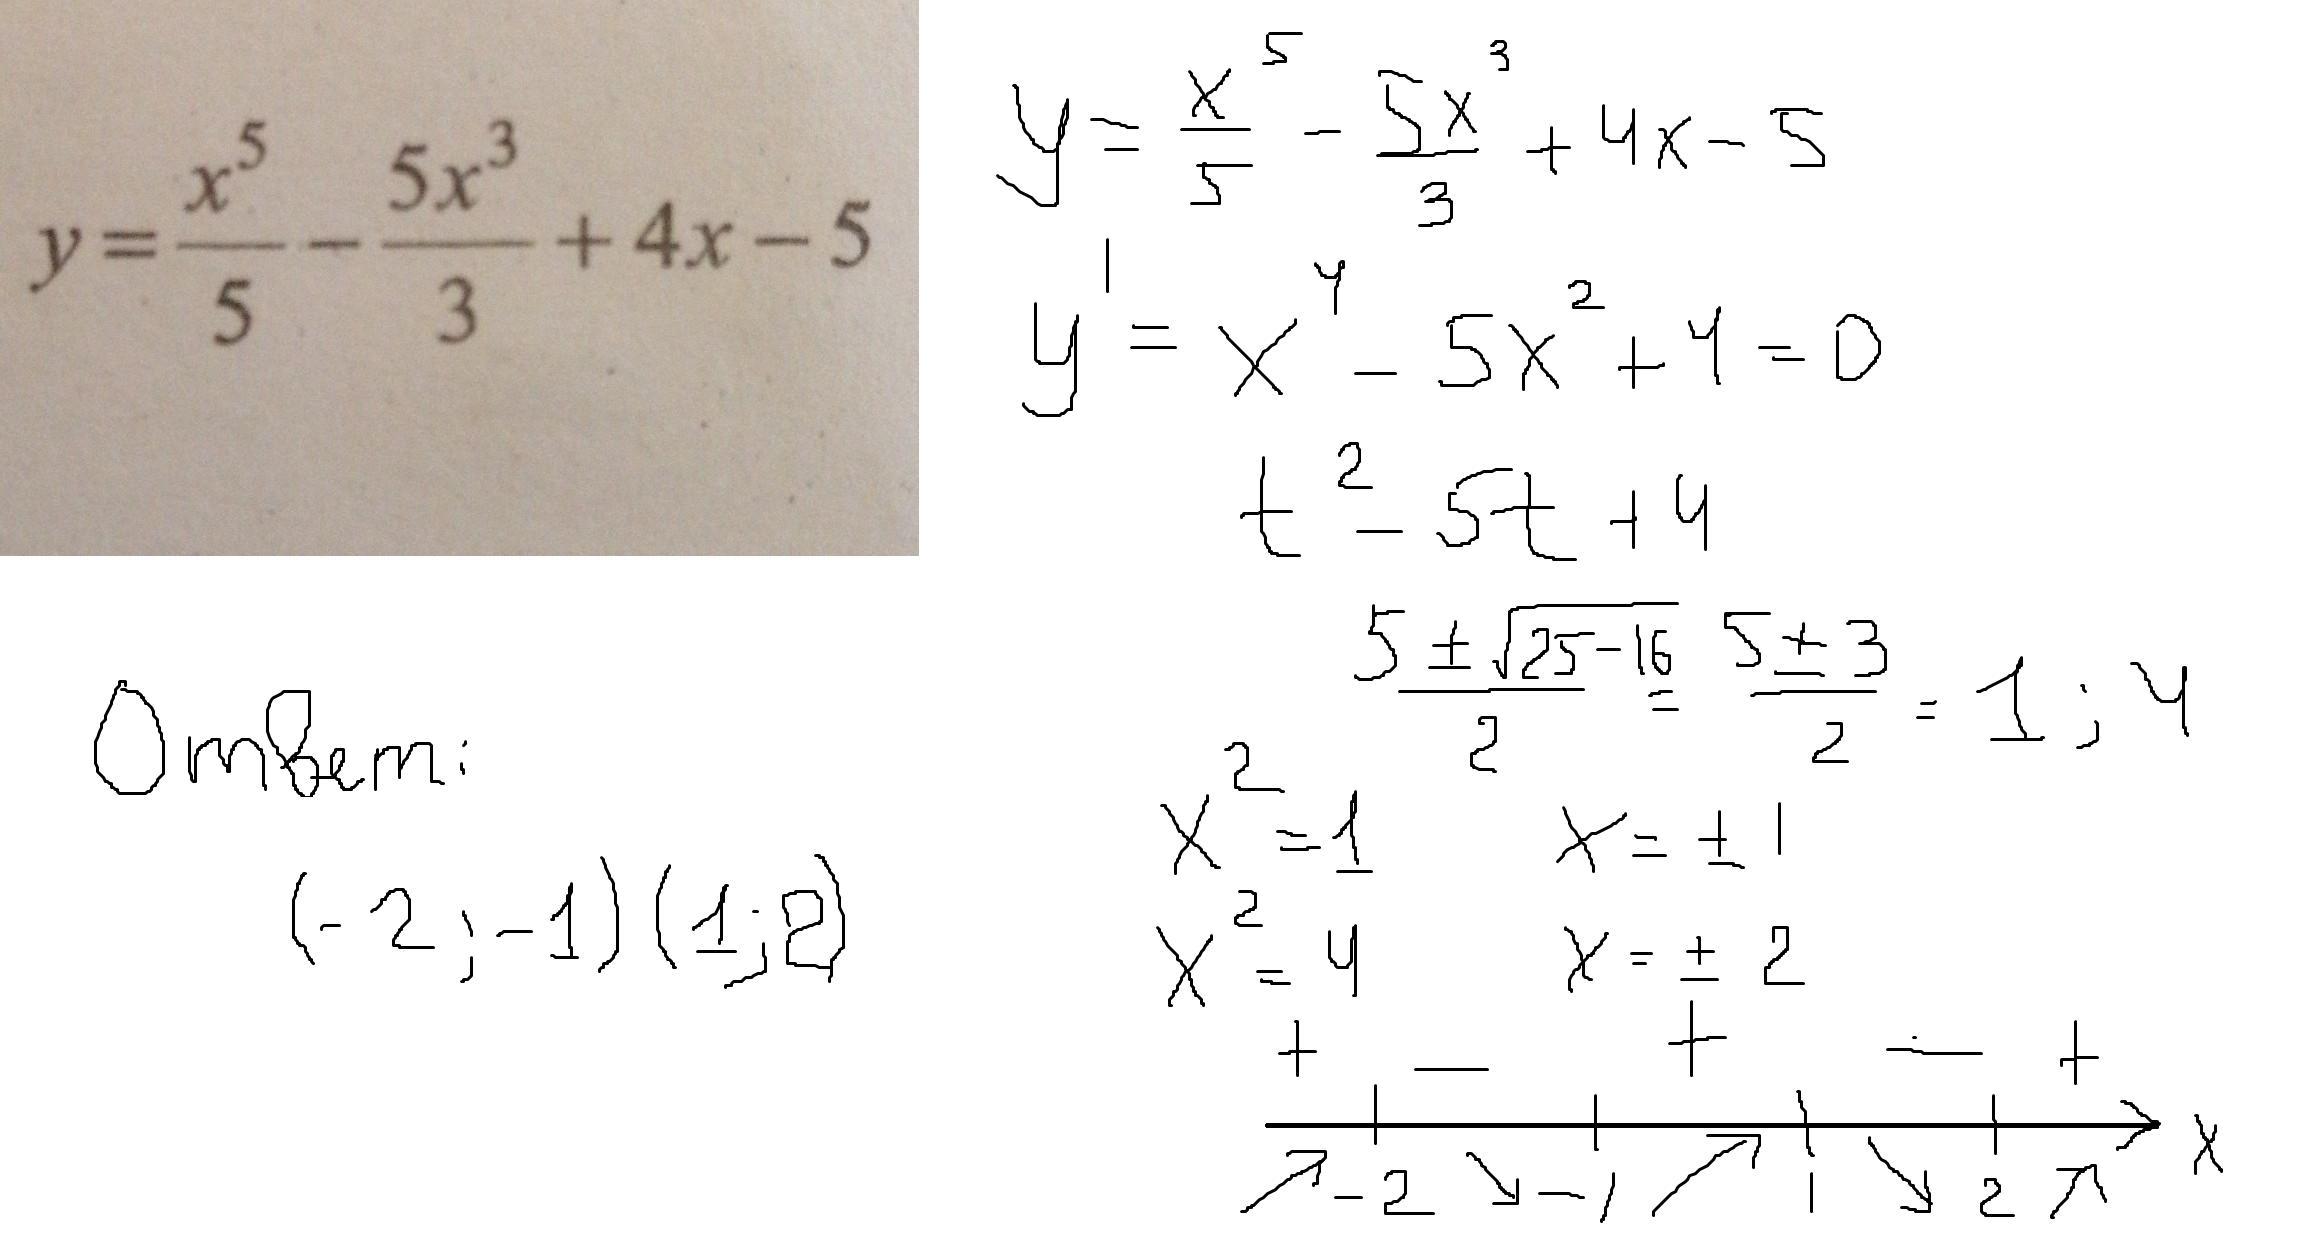 y = x^5/5 − 5x^3/3 + 4x − 5
y = x^5/5 − 5x^3/3 + 4x − 5
y' = x^4 − 5x^2 + 4 = 0
t^2 − 5t + 4
(5 ± √(25−16))/2 = (5 ± 3)/2 = 1 ; 4
x^2 = 1 x = ± 1
x^2 = 4 x = ± 2
+ − + − +
↗ −2 ↘ −1 ↗ 1 ↘ 2 ↗ x
Ответ:
(−2 ; −1) (1 ; 2)